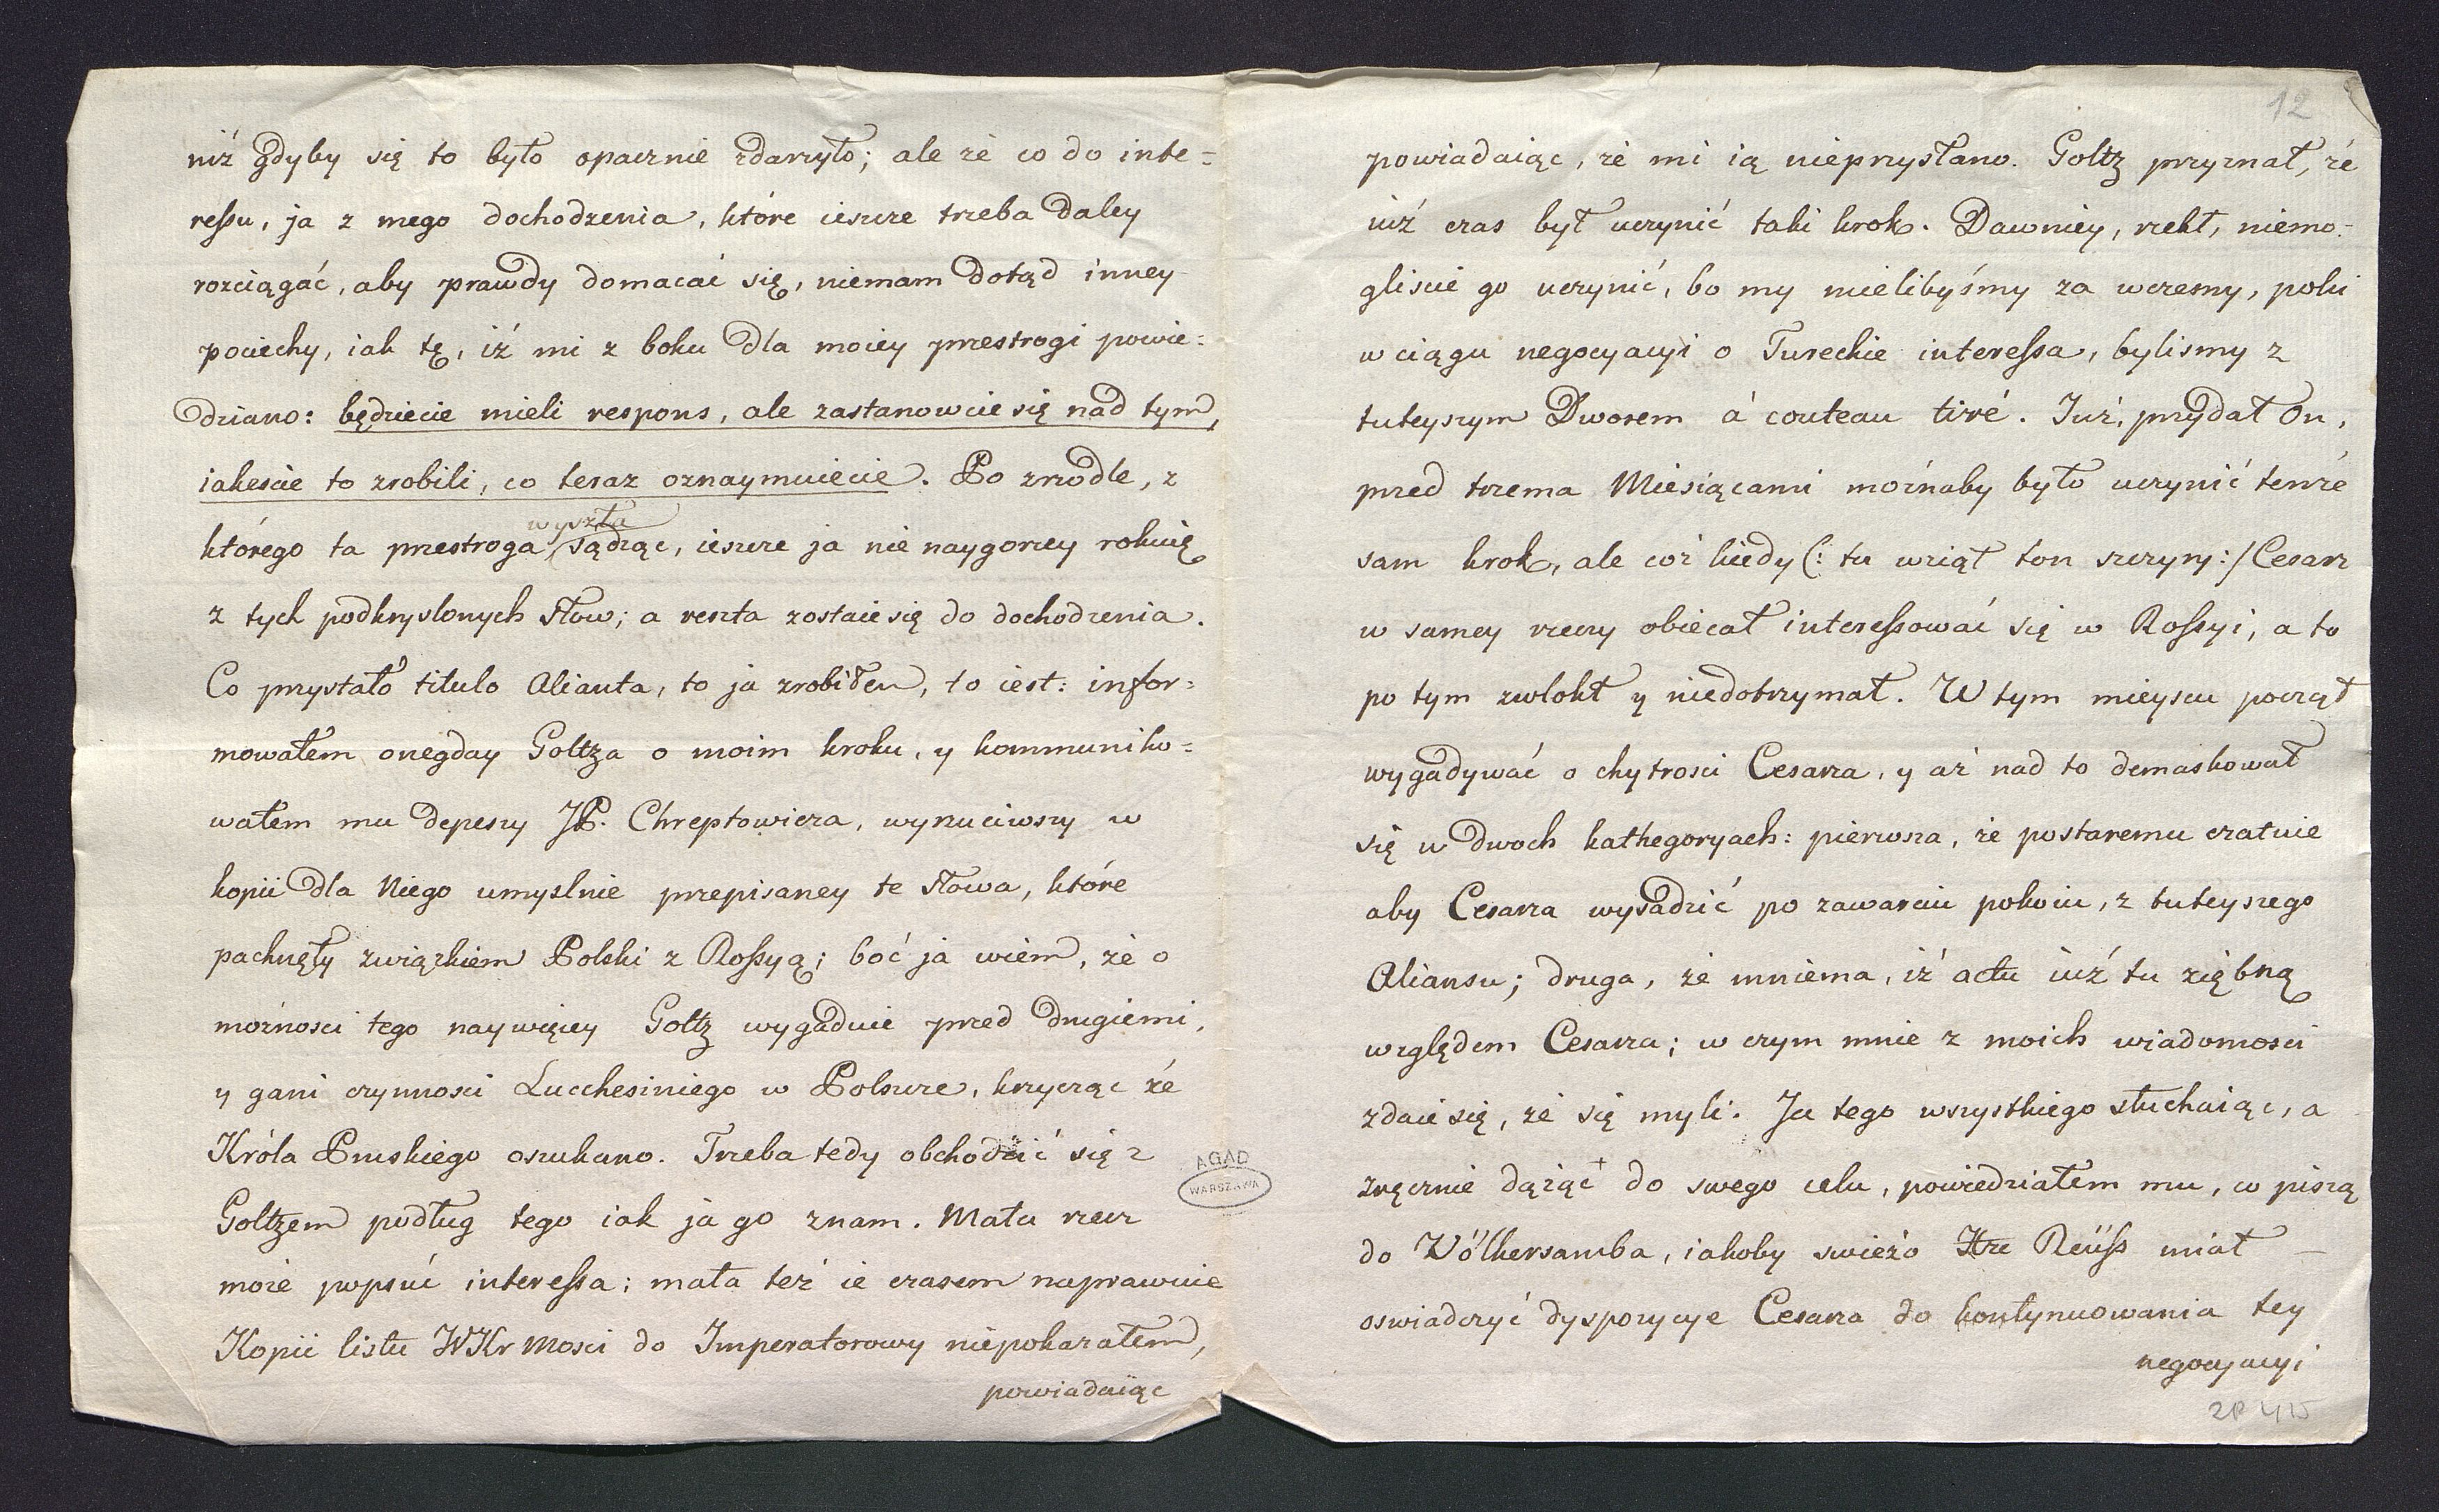 niż gdyby się to było opacznie zdarzyło; ale że co do inte=
ressu, ja z mego dochodzenia, które ieszcze trzeba daley
rozciągać, aby prawdy domacać się, niemam dotąd inney
pociechy, iak tę, iż mi z boku dla moiey przestrogi powie=
dziano: będziecie mieli respons, ale zastanowcie się nad tym,
iakescie to zrobili, co teraz oznaymuiecie. Po zrzodle, z
wyszła
którego ta przestroga sądząc, ieszcze ja nie naygorzey rokuię
z tych podkryslonych słow; a reszta zostaie się do dochodzenia.
Co przystało titulo Alianta, to ja zrobiłem, to iest: infor=
mowałem onegday Goltza o moim kroku, y kommuniko=
wałem mu depeszy JP. Chreptowicza, wyrzuciwszy w
kopii dla Niego umyslnie przepisaney te słowa, które
pachnęły związkiem Polski z Rossyą; boć ja wiem, że o
możnosci tego naywięcey Goltz wygaduie przed drugiemi,
y gani czynnosci Lucchesiniego w Polszcze, krzycząc że
Króla Pruskiego oszukano. Trzeba tedy obchodzić się z
Goltzem podług tego iak ja go znam. Mała rzecz
może popsuć interessa; mała też ie czasem naprawuie
Kopii listu WKr Mosci do Imperatorowy niepokazałem,
powiadaiąc
AGAD
WARSZAWA
12
powiadaiąc, że mi ią nieprzysłano. Goltz przyznał, że
iuż czas był uczynić taki krok. Dawniey, rzekł, niemo=
gliscie go uczynić, bo my mielibyśmy za wczesny, poki
w ciągu negocyacyi o Tureckie interessa, bylismy z
tuteyszym Dworem à couteau tiré. Już, przydał On,
przed trzema Miesiącami możnaby było uczynić tenże
sam krok, ale coż kiedy (: tu wziął ton szczyry :) Cesarz
w samey rzeczy obiecał interessować się w Rossyi, a to
po tym zwlokł y niedotrzymał. W tym mieyscu począł
wygadywać o chytrosci Cesarza, y aż nad to demaskował
się w dwoch kathegoryach: pierwsza, że postaremu czatuie
aby Cesarza wysadzić po zawarciu pokoiu, z tuteyszego
Aliansu; druga, że mniema, iż actu iuż tu ziębną
względem Cesarza; w czym mnie z moich wiadomosci
zdaie się, że się myli. Ja tego wszystkiego słuchaiąc, a
zręcznie dążąc do swego celu, powiedziałem mu, co piszą
do Völkersamba, iakoby swieżo Xże Reüss miał
oswiadczyć dyspozycye Cesarza do kontynuowania tey
negocyacyi